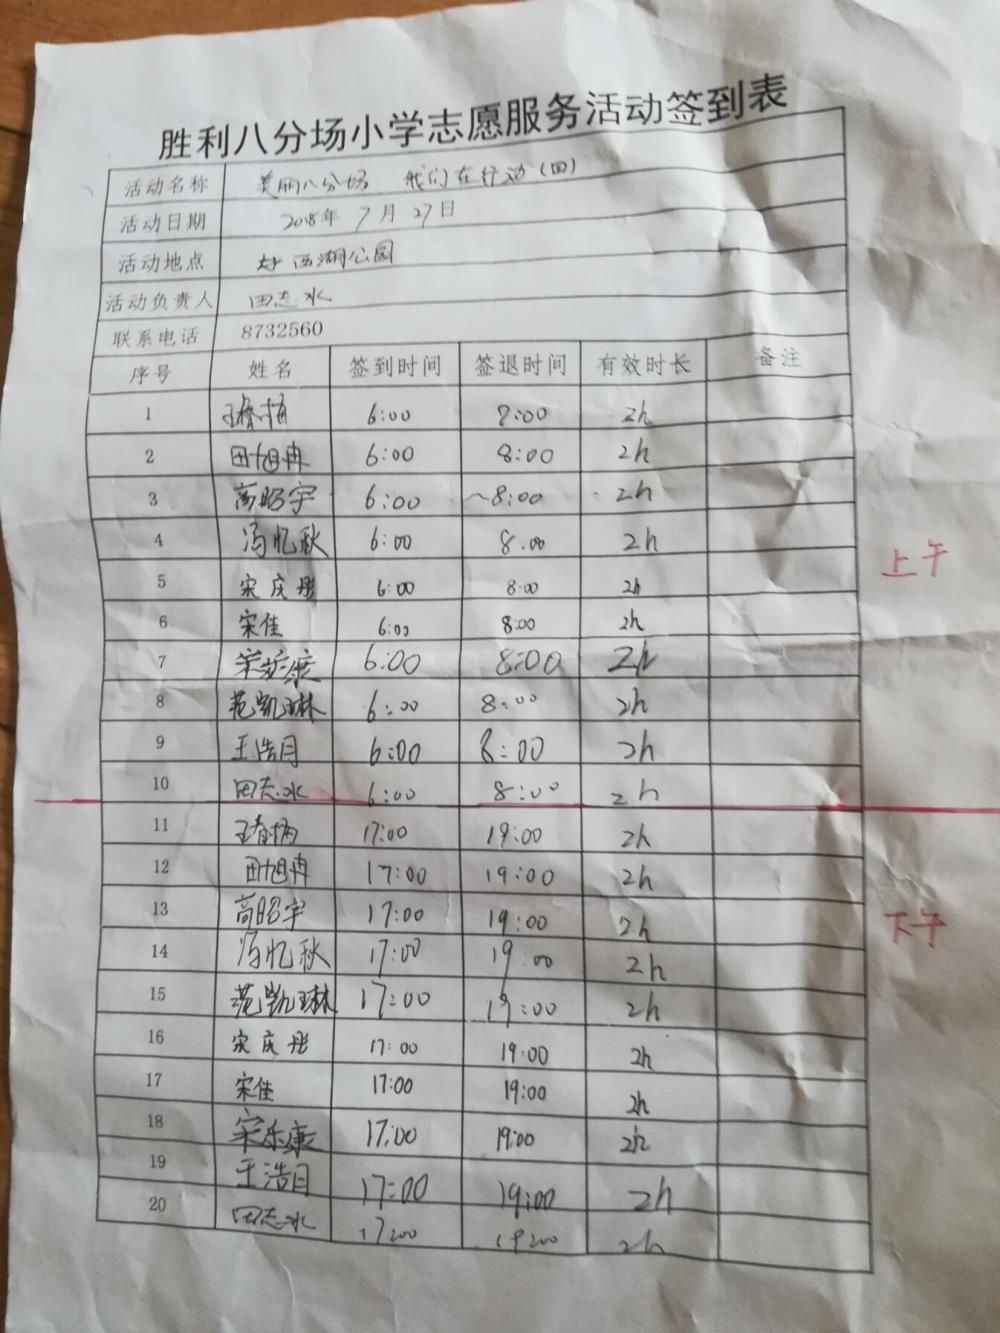 胜利八分场小学志愿服务活动签到表
活动名称 美丽八分场 我们在行动(四)
活动日期 2018年 7月 27日
活动地点 西湖公园
活动负责人 田志水
联系电话 8732560
序号 姓名 签到时间 签退时间 有效时长 备注
1 6:00 8:00 2h
2 田旭冉 6:00 8:00 2h
3 高昭宇 6:00 ~8:00 2h
4 冯忆秋 6:00 8:00 2h
上午
5 宋庆彤 6:00 8:00 2h
6 宋佳 6:00 8:00 2h
7 宋乐康 6:00 8:00 2h
8 范凯琳 6:00 8:00 2h
9 王浩月 6:00 8:00 2h
10 田志水 6:00 8:00 2h
11 17:00 19:00 2h
12 田旭冉 17:00 19:00 2h
13 高昭宇 17:00 19:00 2h
下午
14 冯忆秋 17:00 19:00 2h
15 范凯琳 17:00 19:00 2h
16 宋庆彤 17:00 19:00 2h
17 宋佳 17:00 19:00 2h
18 宋乐康 17:00 19:00 2h
19 王浩月 17:00 19:00 2h
20 田志水 17:00 19:00 2h